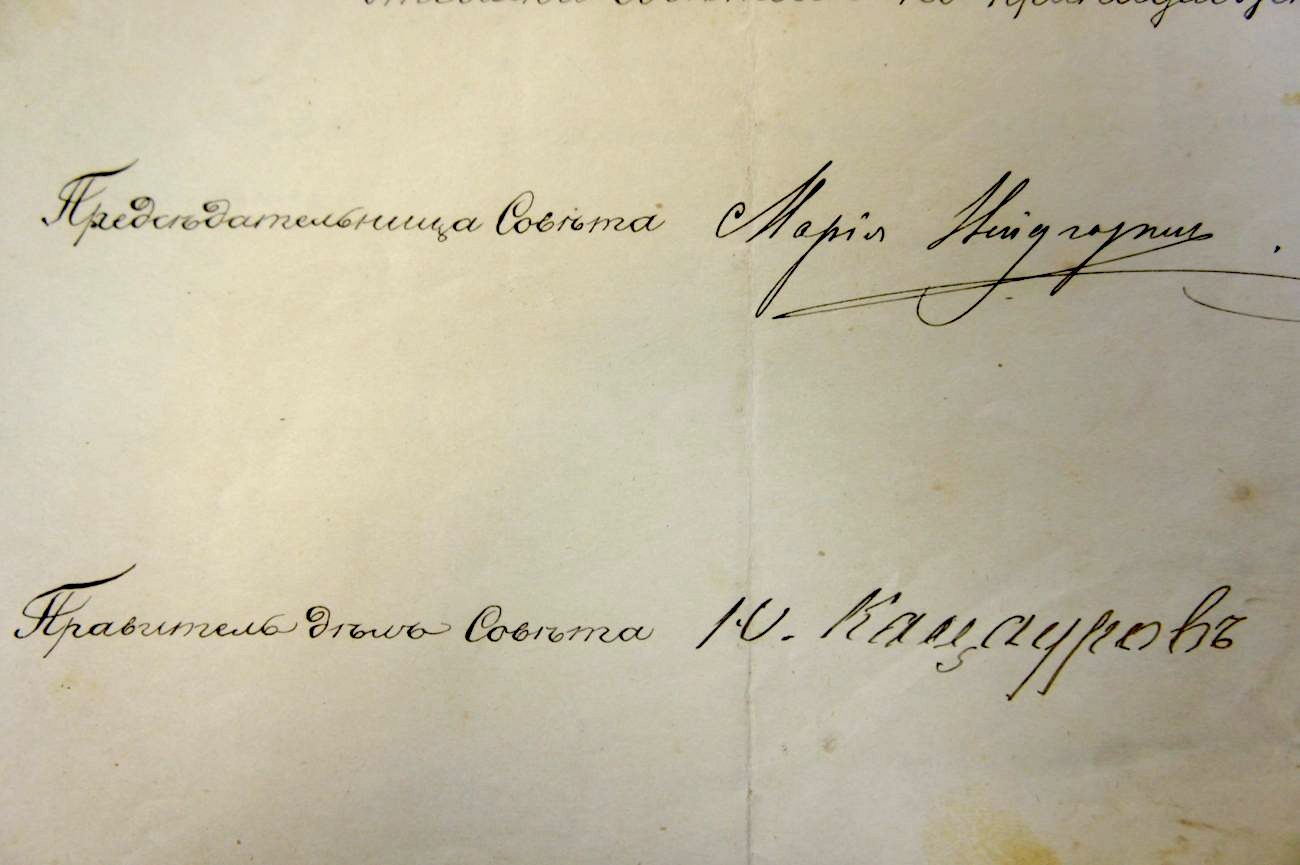 Предсѣдательница Совѣта Марія Нейдгардтъ
Правитель дѣлъ Совѣта Ю. Кацауровъ